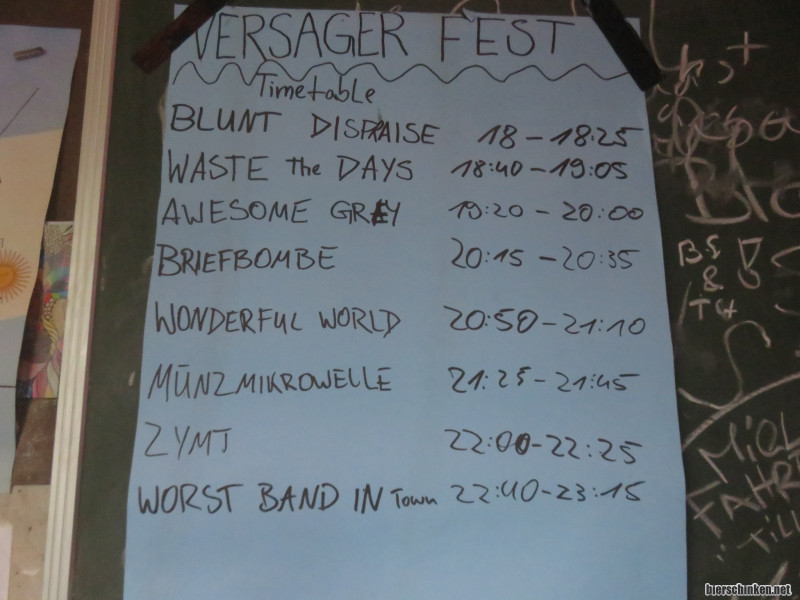 VERSAGER FEST
Timetable
BLUNT DISPRAISE 18 - 18:25
WASTE the DAYS 18:40 - 19:05
AWESOME GREY 19:20 - 20:00
BRIEFBOMBE 20:15 - 20:35
WONDERFUL WORLD 20:50 - 21:10
MÜNZMIKROWELLE 21:25 - 21:45
ZYMT 22:00 - 22:25
WORST BAND IN Town 22:40 - 23:15
BS
&
TH
FAHR
bierschinken.net